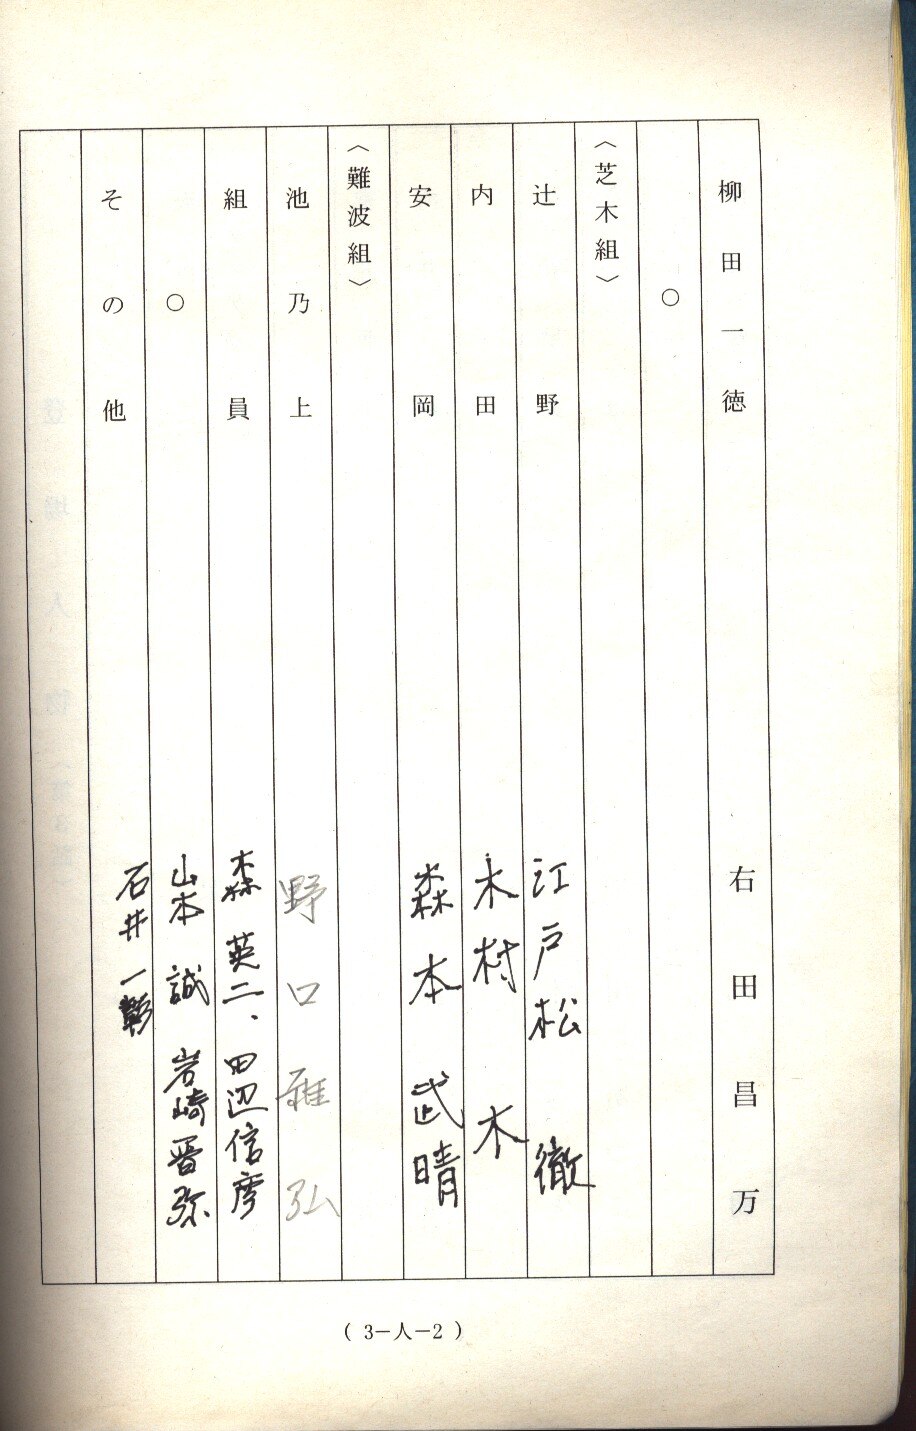 柳田一徳 右田昌万
○
〈芝木組〉
辻野 江戸松 徹
内田 木村 木
安岡 森本 武晴
〈難波組〉
池乃上 野口 雅弘
組員 森 英二、田辺信彦
○ 山本 誠 岩崎晋弥
その他 石井 一彰
(3-人-2)